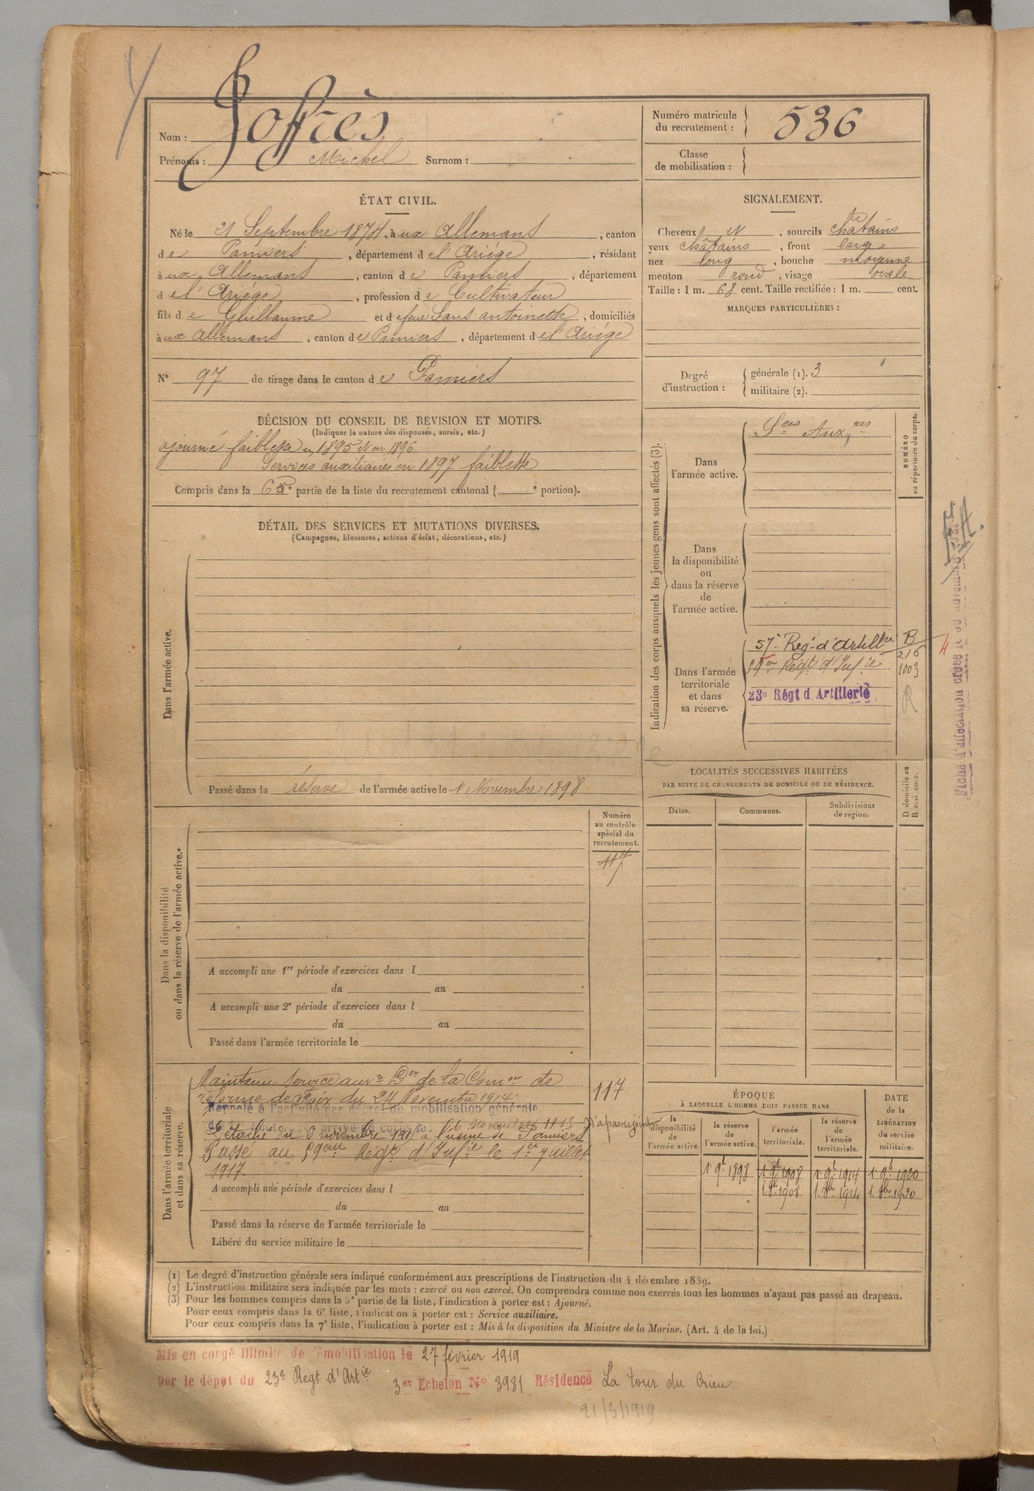 Nom : Joffrès
Prénoms : Michel Surnom :
Numéro matricule du recrutement : 536
Classe de mobilisation :
ÉTAT CIVIL.
Né le 21 Septembre 1874, à aux Allemans, canton
de Pamiers, département de l'Ariège, résidant
à aux Allemans, canton de Pamiers, département
de l'Ariège, profession de Cultivateur
fils de Guillaume et de feue Sans antoinette, domiciliés
à aux Allemans, canton de Pamiers, département de l'Ariège
N° 97 de tirage dans le canton de Pamiers
SIGNALEMENT.
Cheveux N, sourcils châtains
yeux châtains, front large
nez long, bouche moyenne
menton rond, visage ovale
Taille : 1 m. 68 cent. Taille rectifiée : 1 m. cent.
MARQUES PARTICULIÈRES :
Degré d'instruction : générale (1). 3
militaire (2).
DÉCISION DU CONSEIL DE REVISION ET MOTIFS.
(Indiquer la nature des dispenses, sursis, etc.)
ajourné faiblesse en 1895 et en 1896
Services auxiliaires en 1897 faiblesse
Compris dans la 6e partie de la liste du recrutement cantonal ( e portion).
DÉTAIL DES SERVICES ET MUTATIONS DIVERSES.
(Campagnes, blessures, actions d'éclat, décorations, etc.)
Dans l'armée active.
Passé dans la réserve de l'armée active le 1 Novembre 1898
Indication des corps auxquels les jeunes gens sont affectés (3).
NUMÉRO au répertoire du corps.
Dans l'armée active.
Sces Auxres
Dans la disponibilité ou dans la réserve de l'armée active.
Dans l'armée territoriale et dans sa réserve.
57e Regt d'Artillie B
216
59e Régt d'Infie 1003
23e Régt d'Artillerie R
Fiche d'affectation
LOCALITÉS SUCCESSIVES HABITÉES
PAR SUITE DE CHANGEMENTS DE DOMICILE OU DE RÉSIDENCE.
Dates. Communes. Subdivisions de région. D domicile ou R résidence.
Dans la disponibilité ou dans la réserve de l'armée active.
Numéro au contrôle spécial du recrutement.
117
A accompli une 1re période d'exercices dans l
du au
A accompli une 2e période d'exercices dans l
du au
Passé dans l'armée territoriale le
Dans l'armée territoriale et dans sa réserve.
Maintenu service auxre Don de la Comon de
réforme de Foix du 24 Novembre 1914
117
Rappelé à l'activité par décret de mobilisation générale
Détaché du novembre à l'usine de Pamiers
Passé au 59eme Régt d'Infie le 1er Juillet
1917
A accompli une période d'exercices dans l
du au
Passé dans la réserve de l'armée territoriale le
Libéré du service militaire le
ÉPOQUE
À LAQUELLE L'HOMME DOIT PASSER DANS
la disponibilité de l'armée active. la réserve de l'armée active. l'armée territoriale. la réserve de l'armée territoriale.
DATE de la LIBÉRATION du service militaire.
1 9bre 1898 1 9bre 1908 1 9bre 1914 1 9bre 1920
1 8bre 1908 1 8bre 1914 1 8bre 1920
(1) Le degré d'instruction générale sera indiqué conformément aux prescriptions de l'instruction du 4 décembre 1889.
(2) L'instruction militaire sera indiquée par les mots : exercé ou non exercé. On comprendra comme non exercés tous les hommes n'ayant pas passé au drapeau.
(3) Pour les hommes compris dans la 5e partie de la liste, l'indication à porter est : Ajourné.
Pour ceux compris dans la 6e liste, l'indication à porter est : Service auxiliaire.
Pour ceux compris dans la 7e liste, l'indication à porter est : Mis à la disposition du Ministre de la Marine. (Art. 4 de la loi.)
Mis en congé illimité de démobilisation le 27 février 1919
par le dépôt du 23e Regt d'Artie 3es Echelon N° 3981 Résidence La Tour du Crieu
21/3/1919